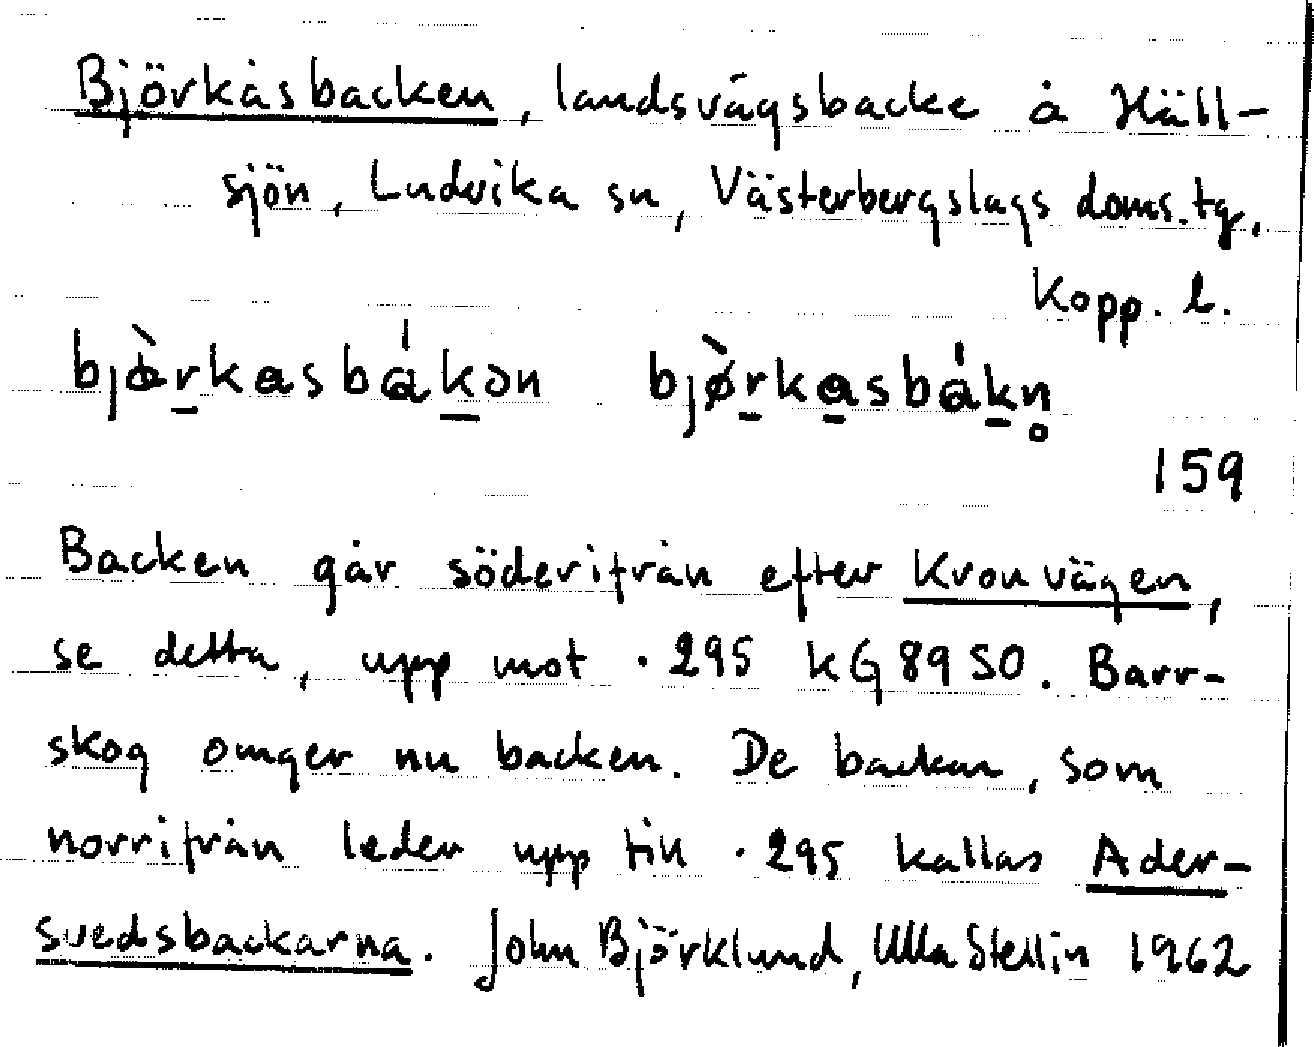 Björkåsbacken, landsvägsbacke å Häll-
sjön, Ludvika sn, Västerbergslags doms.tg.
Kopp. l.
bjɵ̀rkasbákən bjø̀rkasbákn̥
159
Backen går söderifrån efter Kronvägen,
se detta, upp mot .295 kG 89 SO. Barr-
skog omger nu backen. De backar, som
norrifrån leder upp till .295 kallas Ader-
svedsbackarna. John Björklund, Ulla Stellin 1962